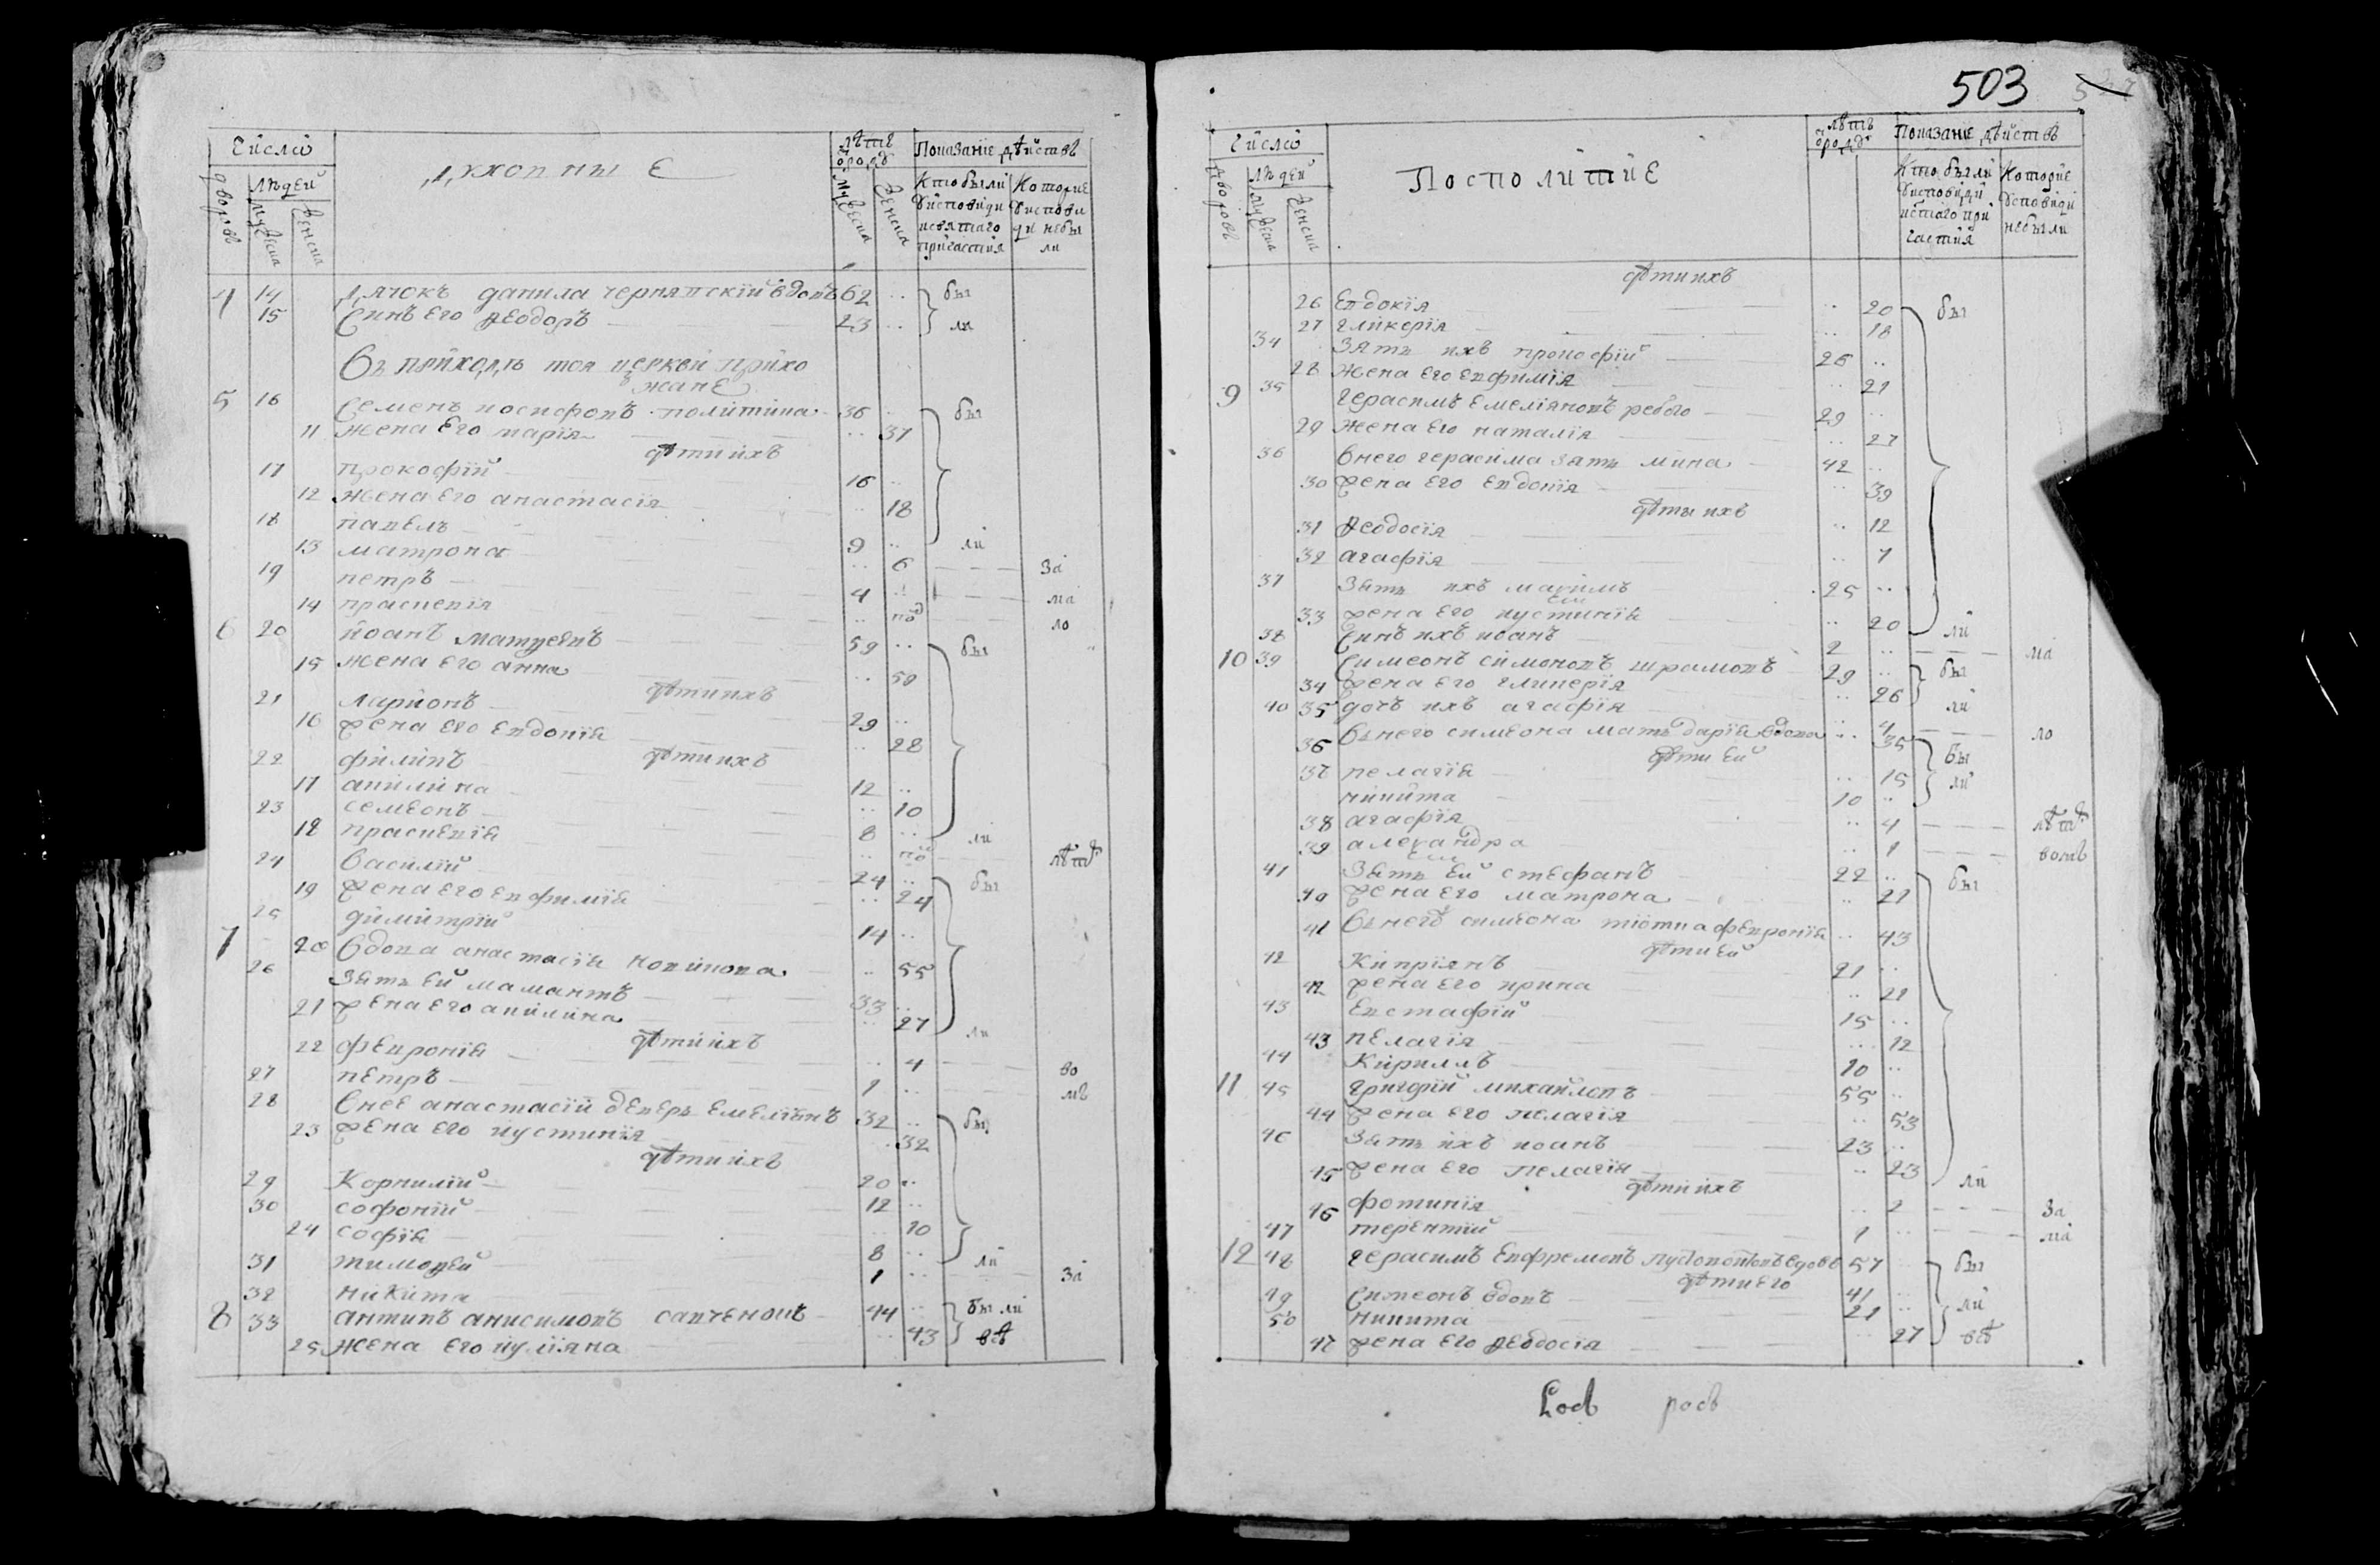 Число
духовныЕ
лѣтъ
Показание дѣйствъ
дворовъ
людей
мужеска
женска
мужеска
женска
Кто были
у исповѣди
и святаго
причастия
Которие
у испове
ди небы
ли
4 14 дячокъ данила чернявскїй вдовъ 62 .. бы
15 Синъ Его Ѳеодоръ 23 .. ли
Въ приходѣ тоя церкви прихо
жанЕ
5 16 Семенъ иосифовъ политика 36 .. бы
11 Жена Его марїя .. 37
дѣти ихъ
17 прокофїй 16 ..
12 жена Его анастасїя .. 18
18 павелъ 9 .. ли
13 матрона .. 6 за
19 петръ 4 .. ма
14 праскевїя .. ло
6 20 иоанъ матѳеевъ 59 .. бы
15 жена Его анна .. 50
дѣти ихъ
21 ларионъ 29 ..
16 жена Его Евдокїя .. 28
дѣти ихъ
22 филипъ 12 ..
17 акилина .. 10
23 семеонъ 8 .. ли
18 праскевїя .. лѣт
24 Василий 24 .. бы
19 жена Его Евфимїя .. 24
25 димитрий 14 ..
7 20 Вдова анастасїя новикова .. 55
26 Зять Ей мамантъ 33 ..
21 жена Его акилина .. 27 ли
дѣти ихъ
22 февронїя .. 4 во
27 петръ 1 .. мъ
28 Унее анастасїй деверь Емелїянъ 32 .. бы
23 жена Его иустинїя .. 32
дѣти ихъ
29 Корнилий 20 ..
30 софоний 12 ..
24 софїя .. 10
31 тимоѳей 8 .. ли
32 никита 1 .. за
8 33 антипъ анисимовъ савченокъ 44 .. были
25 жена Его иулїяна .. 43 всѣ
503
Число
Посполитие
лѣтъ
Показание дѣйствъ
дворовъ
людей
мужеска
женска
Кто были
у исповѣди
и стаго при
частия
Которие
у сповѣди
небыли
дѣти ихъ
26 Евдокїя .. 20 бы
27 гликерїя .. 18
34 Зять ихъ прокофїй 26 ..
28 жена Его Евфимїя .. 21
9 35 герасимъ Емелїяновъребого 29 ..
29 жена Его наталїя .. 27
36 Унего герасима зять мина 42 ..
30 жена Его Евдокїя .. 39
дѣти ихъ
31 Ѳеодосїя .. 12
32 агафїя .. 7
37 Зять ихъ максимъ 25 ..
33 жена Его иустинїя .. 20 ли
38 Синъ ихъ иоанъ 2 .. ма
10 39 Симеонъ симоновъ шрамовъ 29 .. бы
34 жена Его гликерїя .. 26 ли
40 35 дочь ихъ агафїя .. 4 ло
36 Унего симеона мать дарїя вдова .. 35 Бы
дѣти Ей
37 пелагїя .. 15 ли
никита 10 ..
38 агафїя .. 4 лѣт
39 александра .. 1 вомъ
41 Зять Ей стефанъ 22 .. бы
40 жена Его матрона .. 21
41 Унего симеона тїотка февронїя .. 43
дѣти Ей
42 Киприянъ 21 ..
42 жена Его ирина .. 21
43 Евстафїй 15 ..
43 пелагїя .. 12
44 Кириллъ 10 ..
11 45 григорий михайловъ 55 ..
44 жена Его пелагїя .. 53
46 Зять ихъ иоанъ 23 ..
45 жена Его пелагїя .. 23 ли
дѣти ихъ
46 фотинїя .. 2 За
47 терентий 1 .. ма
12 48 герасимъ Евфремовъ вдовъ 57 бы
дѣти Его
49 Симеонъ вдовъ 41 .. ли
50 никита 21 ..
47 жена Его Ѳеодосїя .. 27 всѣ